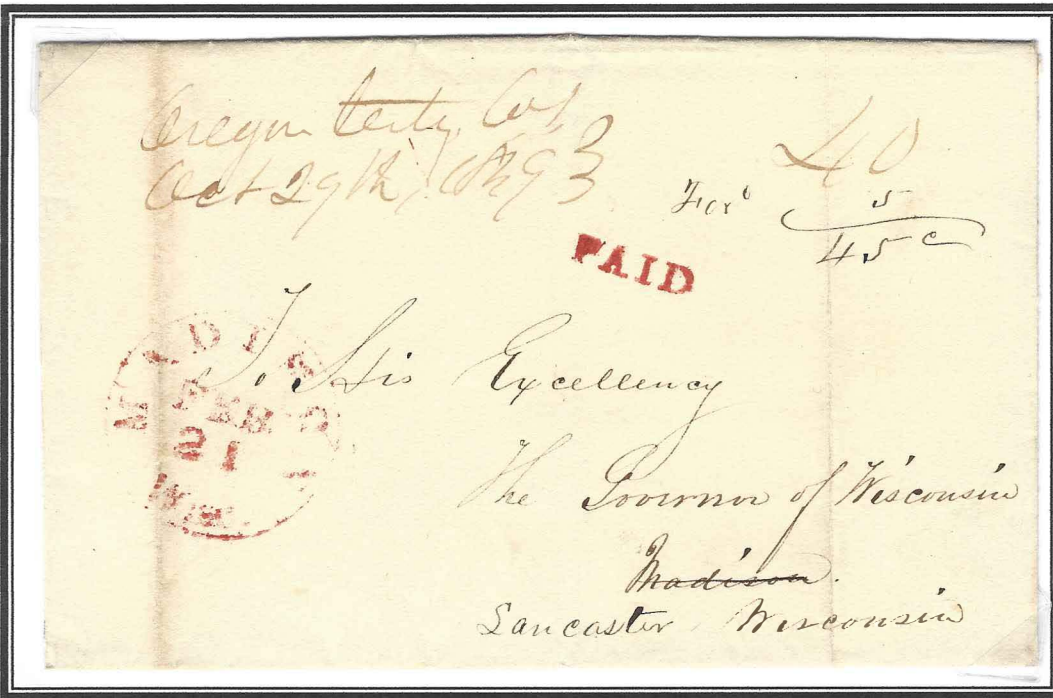 Oregon City, O.T.
Oct 29th, 1849
40
For'd 5
45c
PAID
MADISON
FEB
21
Wis.
To His Excellency
The Governor of Wisconsin
Madison.
Lancaster Wisconsin